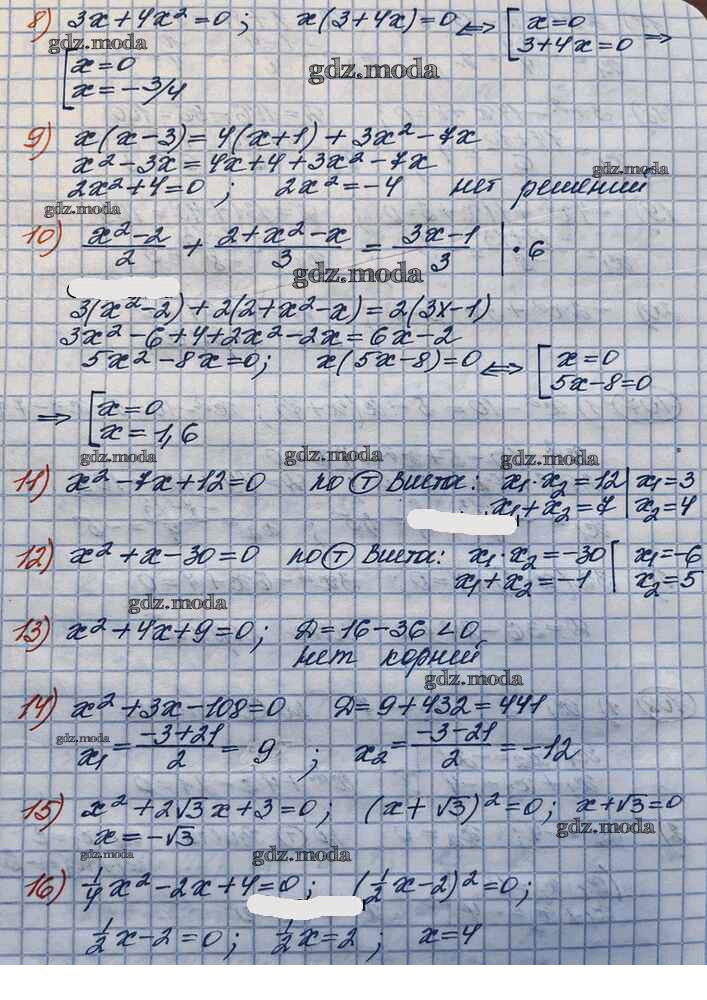 8) 3x + 4x² = 0 ; x(3 + 4x) = 0 ⟺ [ x = 0
3 + 4x = 0 ⟹
gdz.moda
[ x = 0
x = -3/4
gdz.moda
9) x(x - 3) = 4(x + 1) + 3x² - 7x
x² - 3x = 4x + 4 + 3x² - 7x
gdz.moda
2x² + 4 = 0 ; 2x² = -4 нет решений
gdz.moda
10) (x² - 2)/2 + (2 + x² - x)/3 = (3x - 1)/3 | · 6
gdz.moda
3(x² - 2) + 2(2 + x² - x) = 2(3x - 1)
3x² - 6 + 4 + 2x² - 2x = 6x - 2
5x² - 8x = 0 ; x(5x - 8) = 0 ⟺ [ x = 0
5x - 8 = 0
⟹ [ x = 0
x = 1,6
gdz.moda gdz.moda gdz.moda
11) x² - 7x + 12 = 0 по Ⓣ Виета: x₁ · x₂ = 12 | x₁ = 3
x₁ + x₂ = 7 | x₂ = 4
12) x² + x - 30 = 0 по Ⓣ Виета: x₁ · x₂ = -30 [ x₁ = -6
x₁ + x₂ = -1 [ x₂ = 5
gdz.moda
13) x² + 4x + 9 = 0 ; D = 16 - 36 < 0
нет корней
gdz.moda
14) x² + 3x - 108 = 0 D = 9 + 432 = 441
gdz.moda
x₁ = (-3 + 21)/2 = 9 ; x₂ = (-3 - 21)/2 = -12
15) x² + 2√3 x + 3 = 0 ; (x + √3)² = 0 ; x + √3 = 0
gdz.moda
x = -√3
gdz.moda gdz.moda
16) 1/4 x² - 2x + 4 = 0 ; (1/2 x - 2)² = 0 ;
1/2 x - 2 = 0 ; 1/2 x = 2 ; x = 4